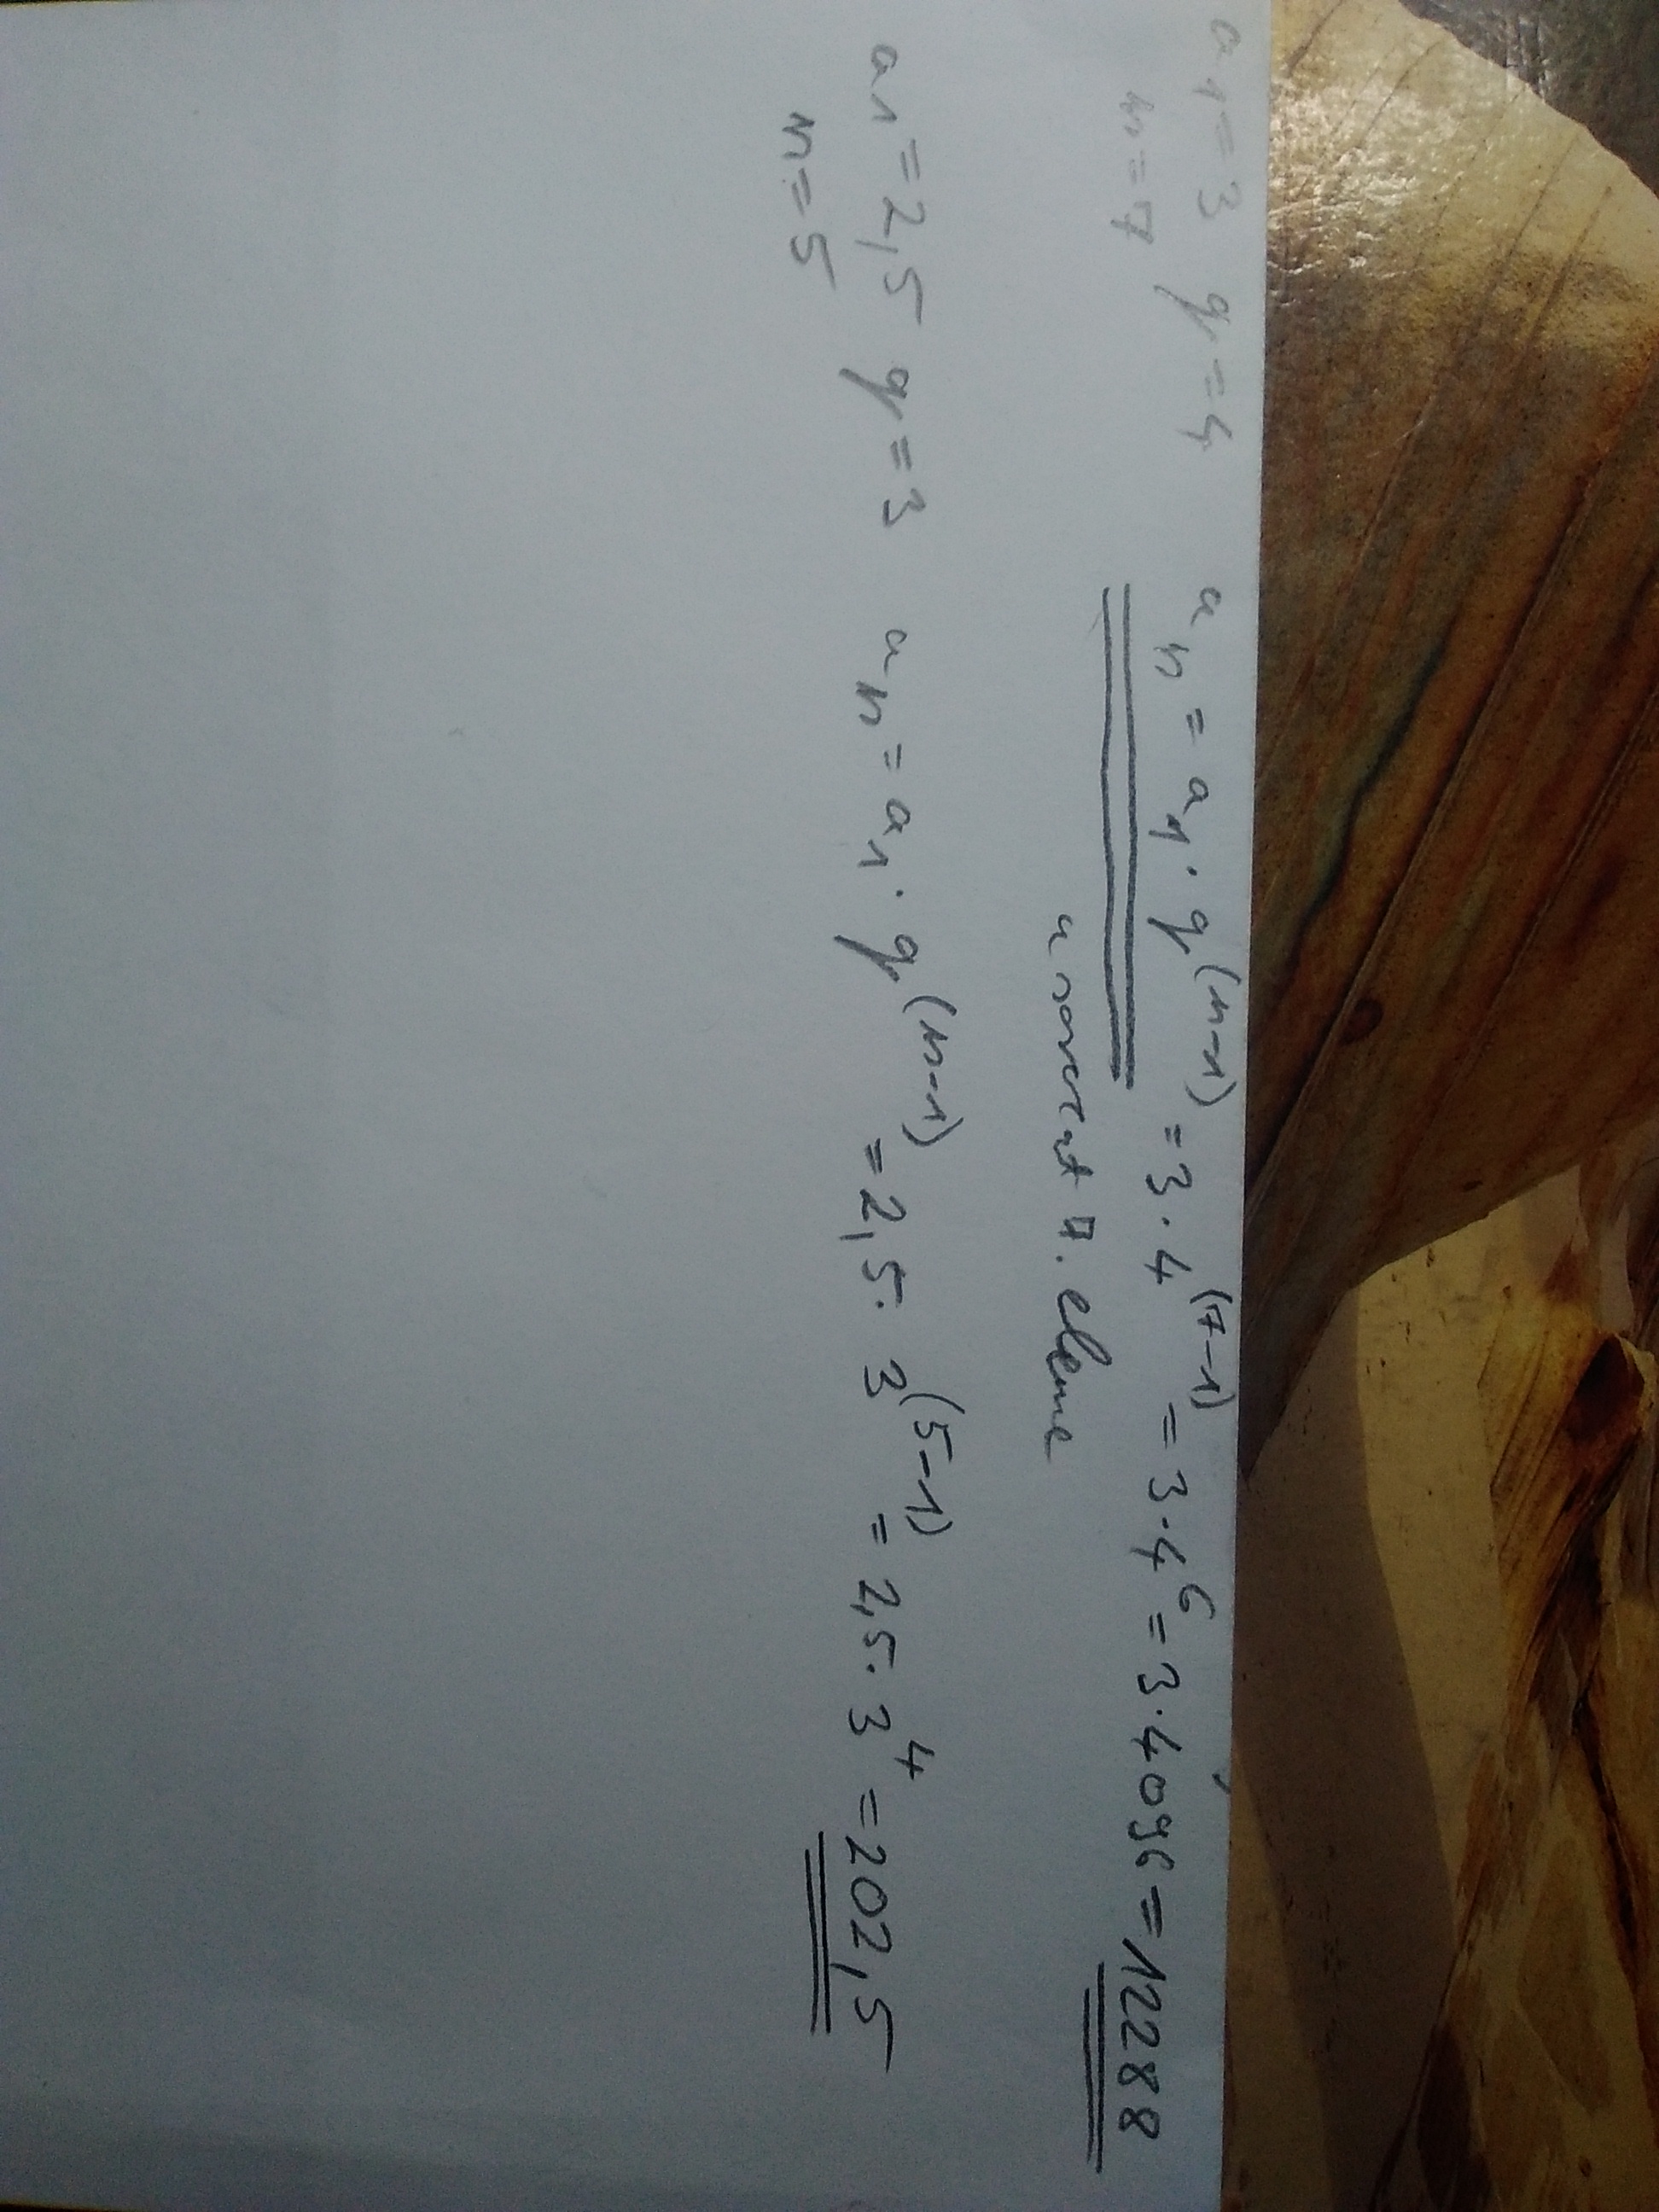 a₁ = 3 q = 4 aₙ = a₁ · q⁽ⁿ⁻¹⁾ = 3 · 4⁽⁷⁻¹⁾ = 3 · 4⁶ = 3 · 4096 = 12288
n = 7
a sorozat 7. eleme
a₁ = 2,5 q = 3 aₙ = a₁ · q⁽ⁿ⁻¹⁾ = 2,5 · 3⁽⁵⁻¹⁾ = 2,5 · 3⁴ = 202,5
n = 5